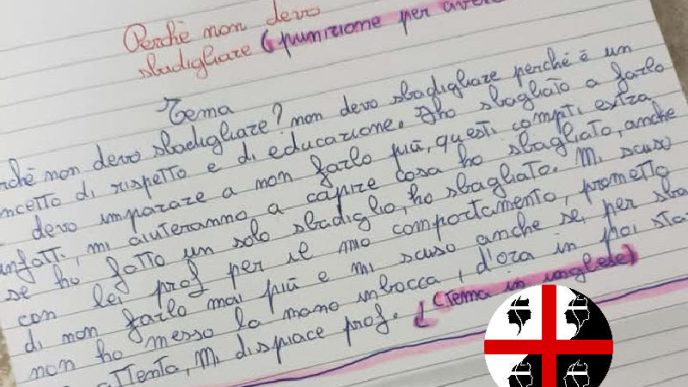 Perchè non devo
sbadigliare (punizione per avere
Tema
non devo sbadigliare? non devo sbadigliare perchè è un
di rispetto e di educazione. Ho sbagliato a farlo
devo imparare a non farlo più, questi compiti extra
infatti, mi aiuteranno a capire cosa ho sbagliato, anche
se ho fatto un solo sbadiglio, ho sbagliato. Mi scuso
con lei prof per il mio comportamento, prometto
di non farlo mai più e mi scuso anche se, per
non ho messo la mano imbocca, d'ora in poi
attenta, Mi dispiace prof. (Tema in inglese)